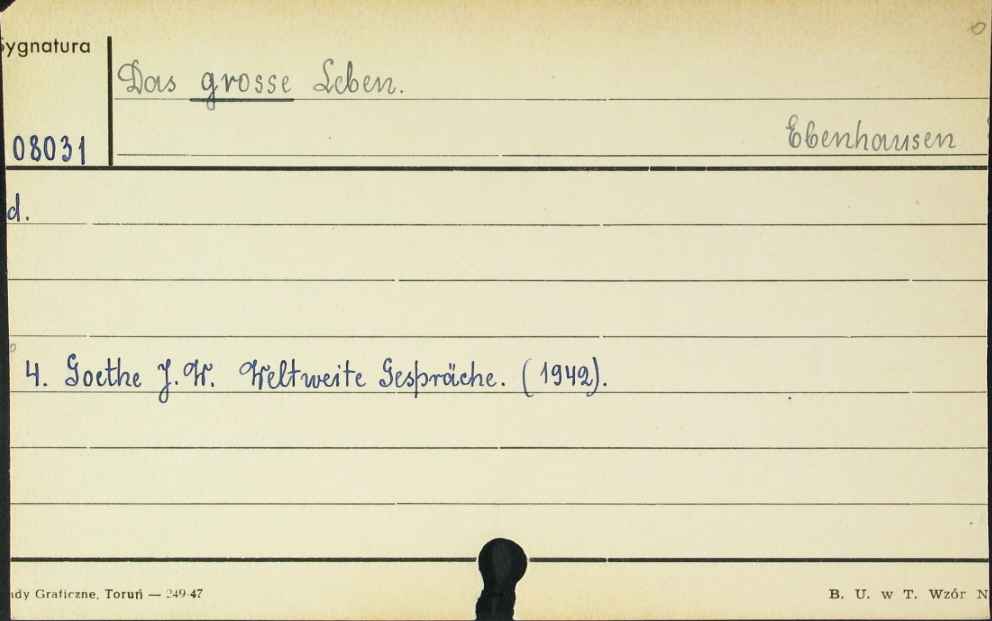 Sygnatura
Das grosse Leben.
Ebenhausen
08031
d.
4. Goethe J. W. Weltweite Gespräche. (1942).
ady Graficzne, Toruń — 249-47
B. U. w T. Wzór N